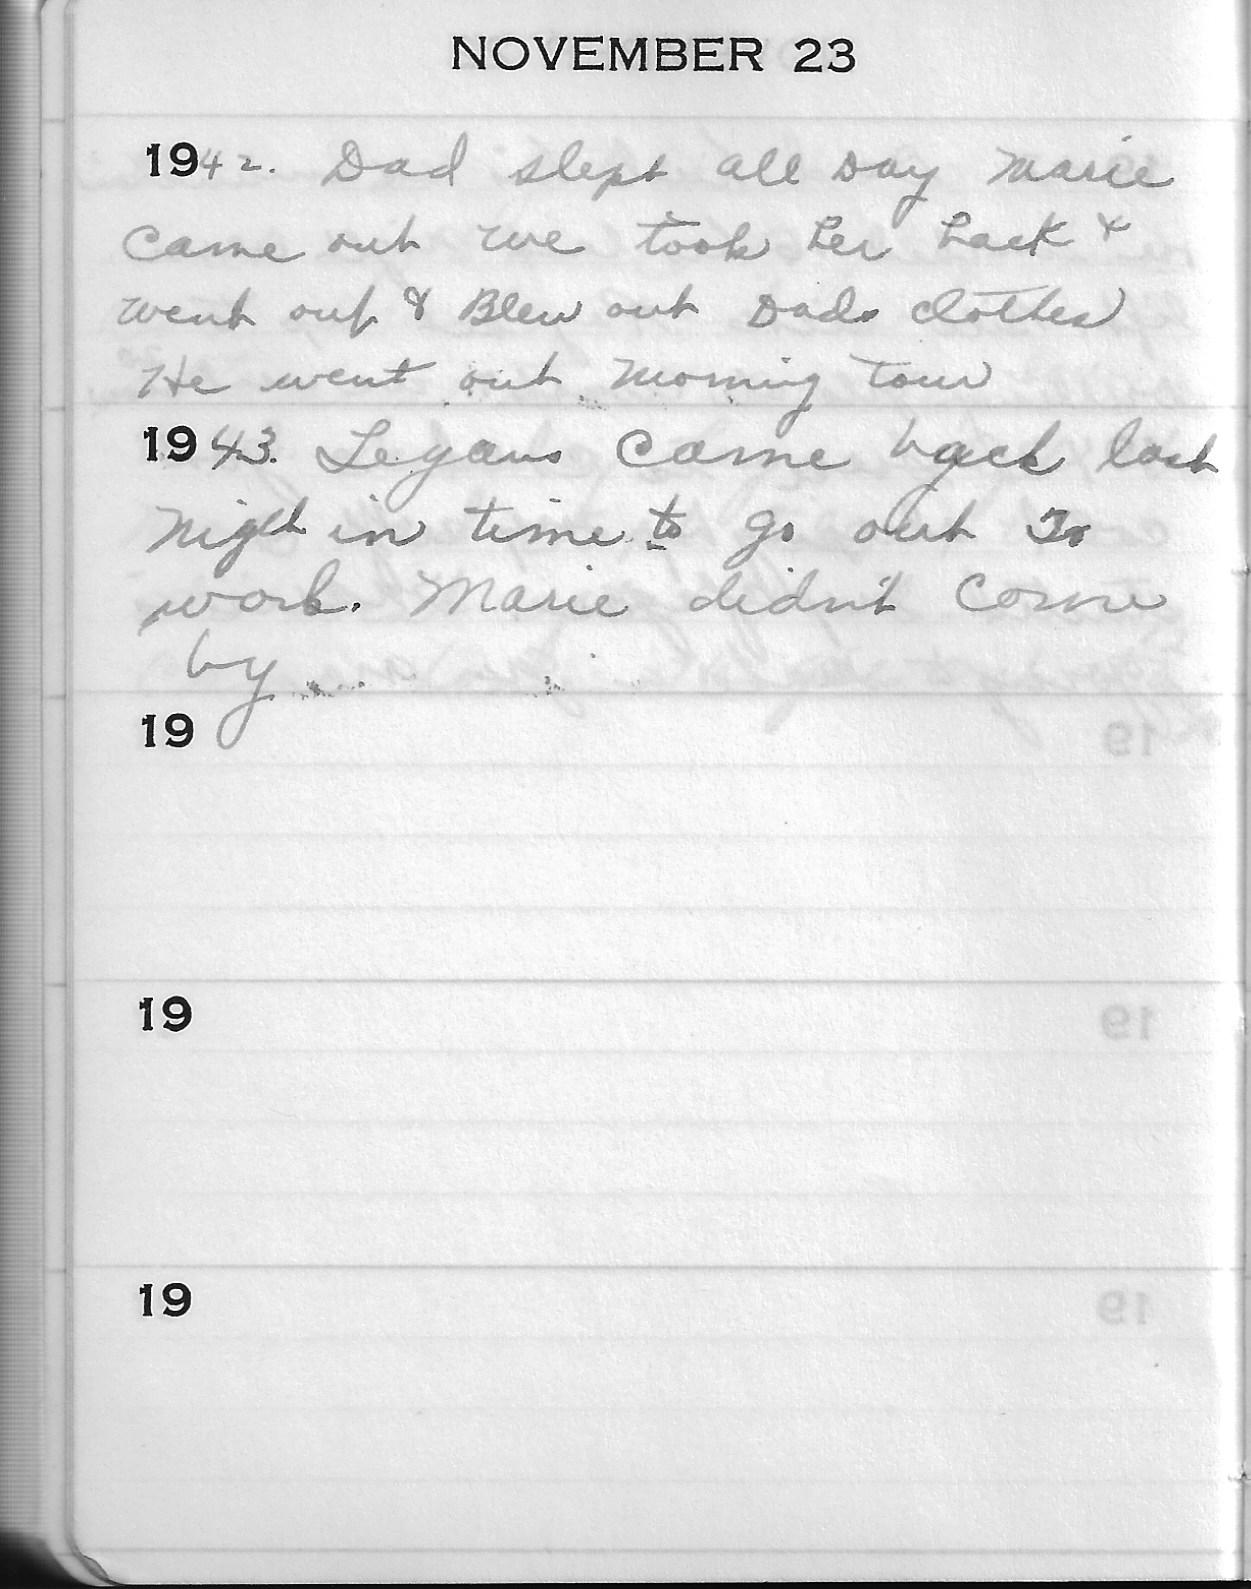 NOVEMBER 23
1942. Dad slept all Day Marie
Came out we took her back &
went out & Blew out Dads clothes
He went out morning Tour
1943. Legans Came back last
night in time to go out To
work. Marie didn't Come
by
19
19
19